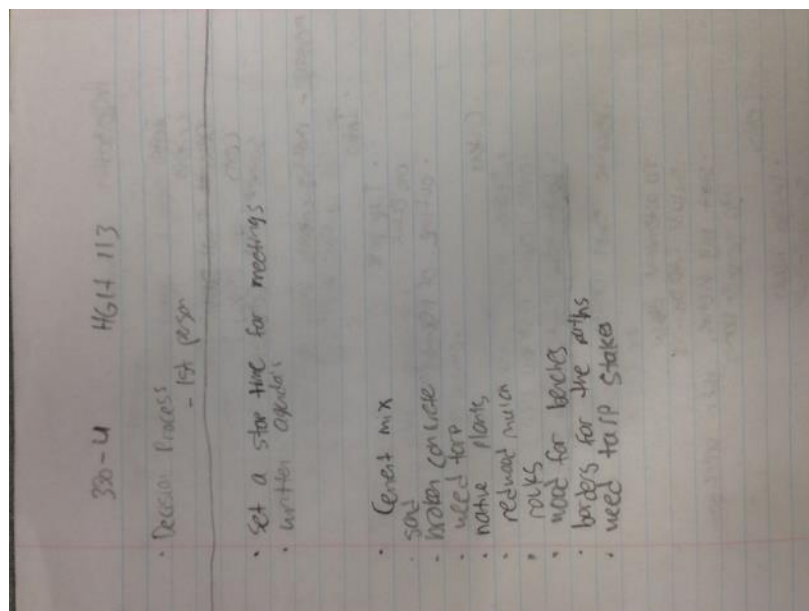 330-4 HGH 113
• Decision Process
- 1st person
• Set a stop time for meetings
• written agenda's
• Cement mix
• sand
• broken concrete
• need tarp
• native plants
• redwood mulch
• rocks
• wood for benches
• borders for the paths
• need tarp stakes